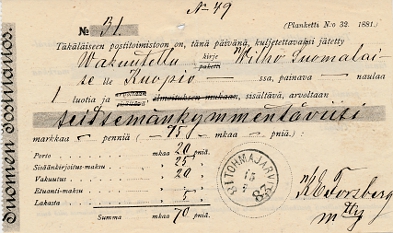 No 49
№ 31. (Planketti N:o 32. 1881.)
Täkäläiseen postitoimistoon on, tänä päivänä, kuljetettavaksi jätetty
Vakuutettu kirje paketti Wilho Suomalai-
se lle Kuopio — ssa, painava — naulaa
1 luotia ja ilmoituksen mukaan, sisältävä, arvoltaan
seitsemänkymmentäviisi
markkaa — penniä ( 75 mkaa — pniä.)
Porto mkaa 20 pniä.
Sisäänkirjoitus-maksu " 25 "
Vakuutus " 20 "
Etuanti-maksu " - "
Lakasta " 5 "
Summa mkaa 70 pniä.
TOHMAJÄRVI
15
82
K. E. Forsberg
Suomen Postilaitos.